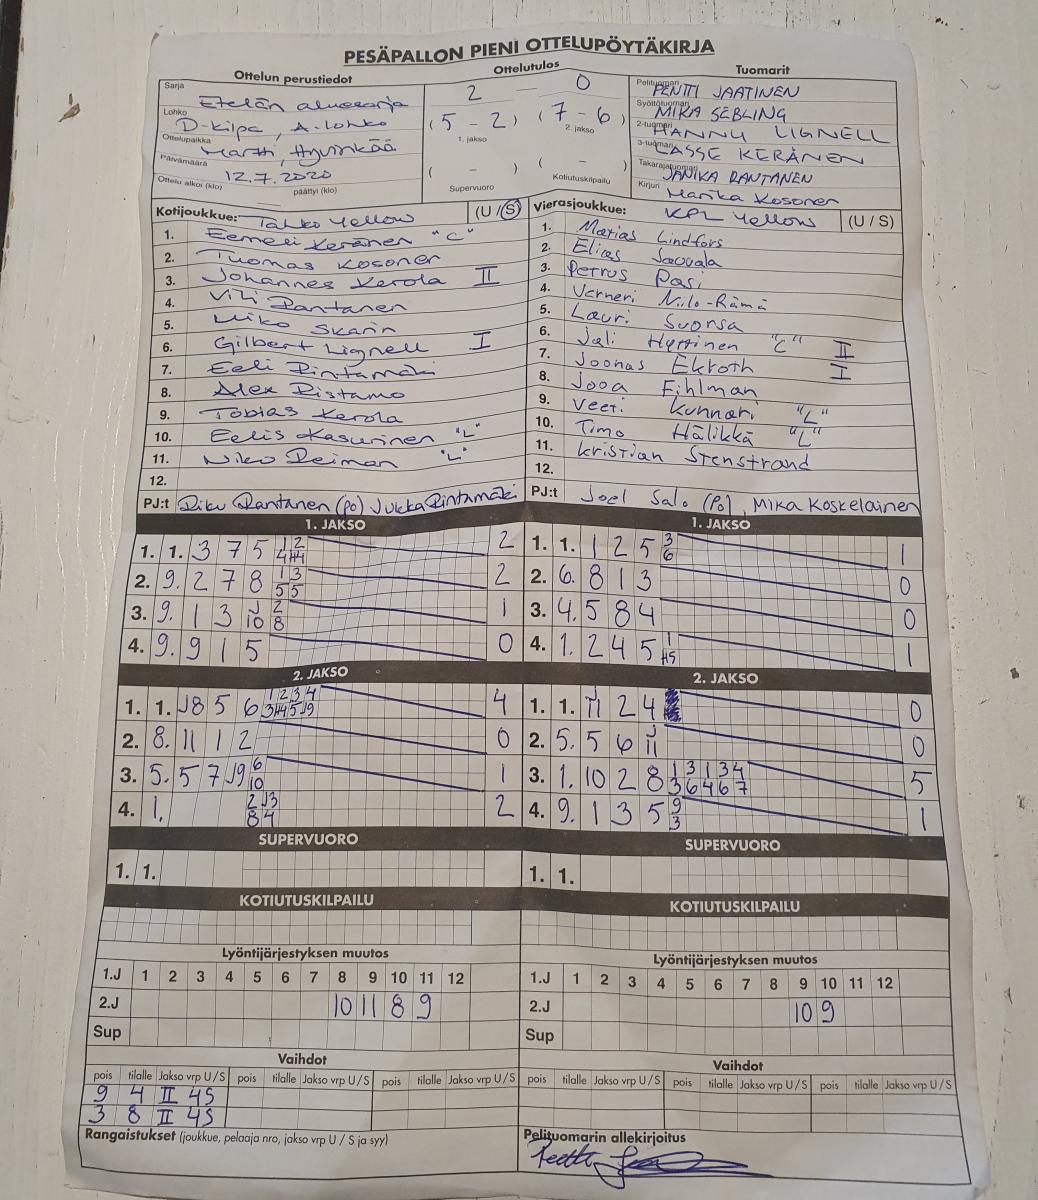 PESÄPALLON PIENI OTTELUPÖYTÄKIRJA
Ottelun perustiedot
Ottelutulos
Tuomarit
Sarja Etelän aluesarja
Lohko D-kilpa, A-lohko
Ottelupaikka Martti, Hyvinkää
Päivämäärä 12.7.2020
Ottelu alkoi (klo) päättyi (klo)
2 — 0
(5 - 2) (7 - 6)
1. jakso 2. jakso
( - ) ( - )
Supervuoro Kotiutuskilpailu
Pelituomari PENTTI JAATINEN
Syöttötuomari MIKA SEBLING
2-tuomari HANNU LIGNELL
3-tuomari LASSE KERÄNEN
Takarajatuomari JANIKA RANTANEN
Kirjuri Marika Kosonen
Kotijoukkue: Tahko Yellow (U / S)
1. Eemeli Keränen "C"
2. Tuomas Kosonen
3. Johannes Kerola II
4. Vili Rantanen
5. Miko Skarin
6. Gilbert Lignell I
7. Eeli Rintamäki
8. Alex Ristamo
9. Tobias Kerola
10. Eelis Kasurinen "L"
11. Niko Reiman "L"
12.
PJ:t Riku Rantanen (po) Jukka Rintamäki
Vierasjoukkue: KPL Yellow (U / S)
1. Matias Lindfors
2. Elias Sauvala
3. Petrus Pasi
4. Verneri Niilo-Rämä
5. Lauri Suonsa
6. Jali Hyttinen "C" II
7. Joonas Ekroth I
8. Jooa Fihlman
9. Veeti Kunnari "L"
10. Timo Hälikkä "L"
11. Kristian Stenstrand
12.
PJ:t Joel Salo (po), Mika Koskelainen
1. JAKSO
1. 1. 3 7 5 1 2 2
4 H4
2. 9. 2 7 8 1 3 2
5 5
3. 9. 1 3 J 2 1
10 8
4. 9. 9 1 5 0
1. JAKSO
1. 1. 1 2 5 3 1
6
2. 6. 8 1 3 0
3. 4. 5 8 4 0
4. 1. 2 4 5 1 1
H5
2. JAKSO
1. 1. J8 5 6 1 2 3 4 4
3 H4 5 J9
2. 8. 11 1 2 0
3. 5. 5 7 J9 6 1
10
4. 1. 2 J3 2
8 4
2. JAKSO
1. 1. J11 2 4 0
2. 5. 5 6 J11 0
3. 1. 10 2 8 1 3 1 3 4 5
3 6 4 6 7
4. 9. 1 3 5 9 1
3
SUPERVUORO
1. 1.
SUPERVUORO
1. 1.
KOTIUTUSKILPAILU
KOTIUTUSKILPAILU
Lyöntijärjestyksen muutos
1.J 1 2 3 4 5 6 7 8 9 10 11 12
2.J 10 11 8 9
Sup
Lyöntijärjestyksen muutos
1.J 1 2 3 4 5 6 7 8 9 10 11 12
2.J 10 9
Sup
Vaihdot
pois tilalle Jakso vrp U/S pois tilalle Jakso vrp U/S pois tilalle Jakso vrp U/S
9 4 II 4S
3 8 II 4S
Vaihdot
pois tilalle Jakso vrp U/S pois tilalle Jakso vrp U/S pois tilalle Jakso vrp U/S
Rangaistukset (joukkue, pelaaja nro, jakso vrp U / S ja syy)
Pelituomarin allekirjoitus